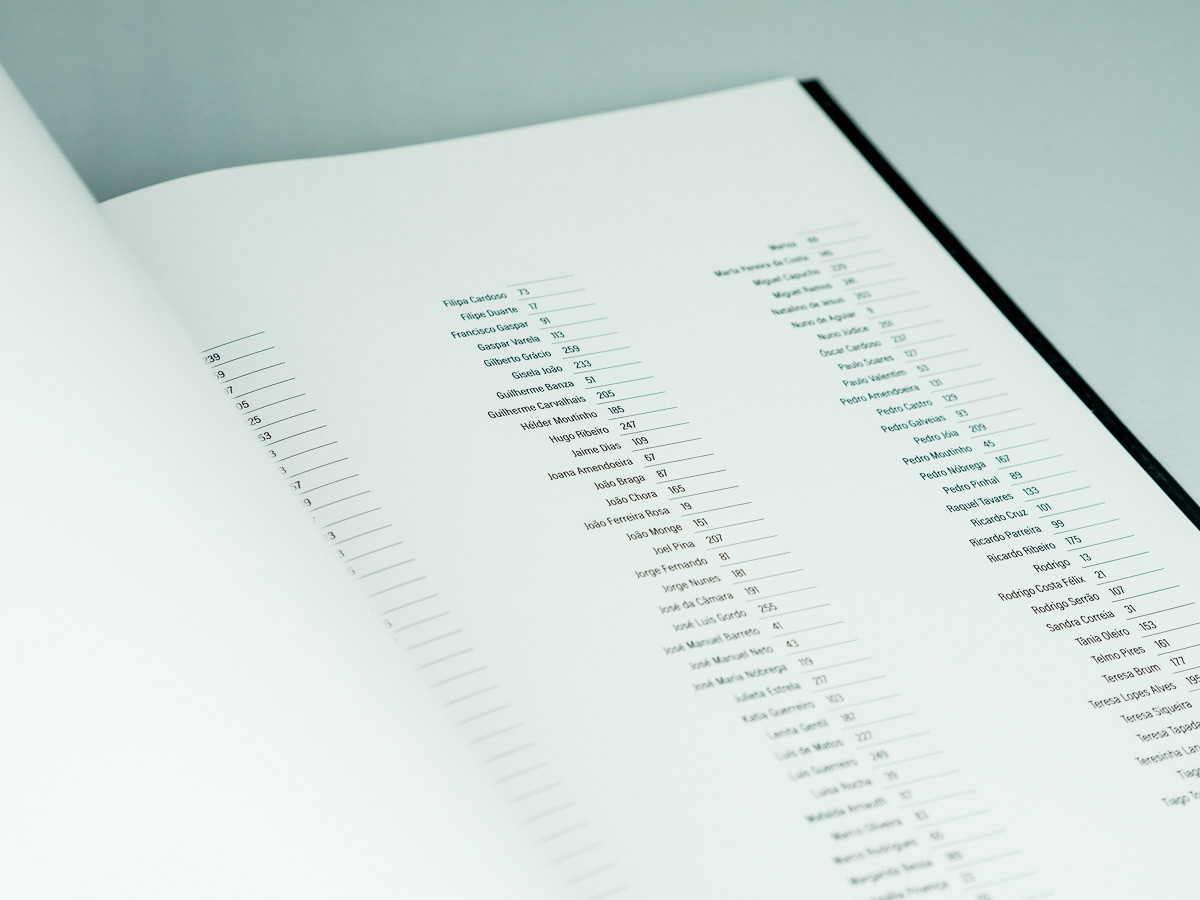 239
25
53
Filipa Cardoso 73
Filipe Duarte 17
Francisco Gaspar 91
Gaspar Varela 113
Gilberto Grácio 259
Gisela João 233
Guilherme Banza 51
Guilherme Carvalhais 205
Hélder Moutinho 185
Hugo Ribeiro 247
Jaime Dias 109
Joana Amendoeira 67
João Braga 87
João Chora 165
João Ferreira Rosa 19
João Monge 151
Joel Pina 207
Jorge Fernando 81
Jorge Nunes 181
José da Câmara 191
José Luís Gordo 255
José Manuel Barreto 41
José Manuel Neto 43
José Maria Nóbrega 119
Julieta Estrela 217
Katia Guerreiro 103
Lenita Gentil 187
Luís de Matos 227
Luís Guerreiro 249
Luísa Rocha
Mafalda Arnauth
Marco Oliveira 83
Marco Rodrigues
Margarida Bessa
Mariza
Marta Pereira da Costa
Miguel Capucho 229
Miguel Ramos 241
Natalino de Jesus 203
Nuno de Aguiar 9
Nuno Júdice 201
Óscar Cardoso 237
Paulo Soares 127
Paulo Valentim 53
Pedro Amendoeira 131
Pedro Castro 129
Pedro Galveias 93
Pedro Jóia 209
Pedro Moutinho 45
Pedro Nóbrega 167
Pedro Pinhal 89
Raquel Tavares 133
Ricardo Cruz 101
Ricardo Parreira 99
Ricardo Ribeiro 175
Rodrigo 13
Rodrigo Costa Félix 21
Rodrigo Serrão 107
Sandra Correia 31
Tânia Oleiro 153
Telmo Pires 161
Teresa Brum 177
Teresa Lopes Alves 195
Teresa Siqueira
Teresa Tapada
Teresinha
Tiago
Tiago